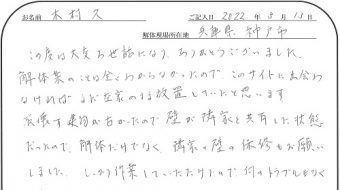 お名前 木村久 ご記入日 2022年3月13日
解体現場所在地 兵庫県神戸市
この度は大変お世話になり、ありがとうございました。
解体業のことは全くわからなかったので、このサイトに出会わ
なければまだ空家のまま放置していたと思います
建物が古かったので壁が隣家と共有した状態
だったので、解体だけでなく、隣家の壁の補修もお願い
しました。しっかり作業していただけたので何のトラブルもなく